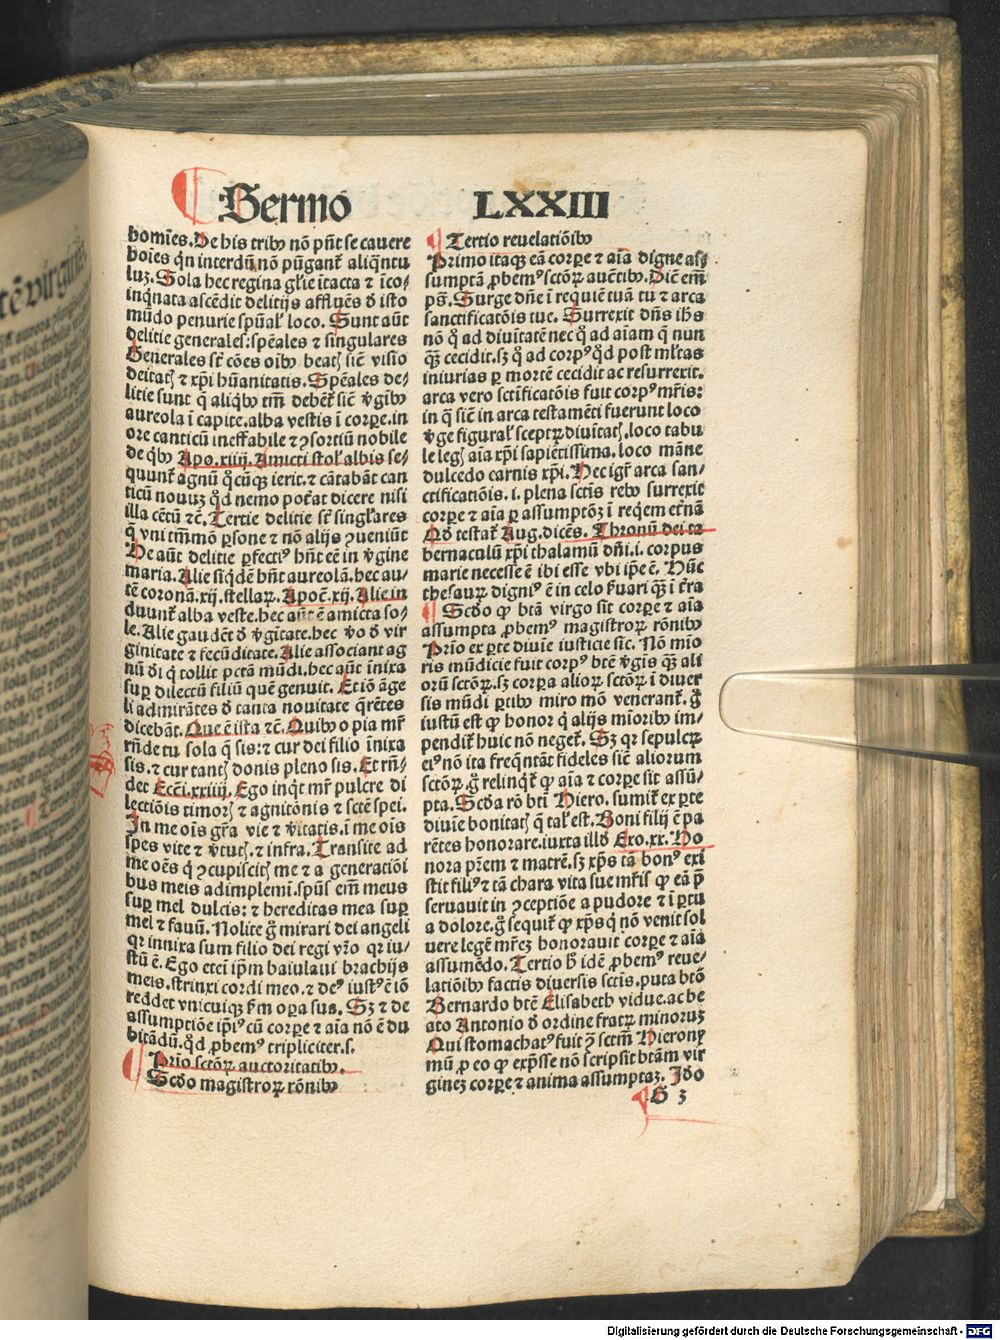 Sermo LXXIII
homīes. De his tribꝰ nō pn̄t se cauere
hoīes qn̄ interdū nō pūgant᷑ aliqn̄tu
luꝫ. Sola hec regina gl̄ie ītacta ⁊ īco-
inq̄nata ascēdit delitijs affluēs ꝺ isto
mūdo penurie spūal᷑ loco. Sunt aūt
delitie generales: spēales ⁊ singulares
Generales st̄ cōes oībꝰ beatꝭ sic̄ visio
deitatꝭ ⁊ xp̄i hūanitatis. Spēales de-
litie sunt q̄ aliqbꝰ tm̄ debēt᷑ sic̄ v̄gībꝰ
aureola ī capite. alba vestis ī corꝑe. in
ore canticū ineffabile ⁊ ꝯsortiū nobile
de qbꝰ Apo. xiiij. Amicti stol᷑ albis se-
quunt᷑ agnū q̊cūqꝫ ierit. ⁊ cātabāt can
ticū nouuꝫ qd̄ nemo pot᷑at dicere nisi
illa cētū ⁊c̄. Tertie delitie st̄ singl᷑ares
q̄ vni tm̄mō ꝑsone ⁊ nō alijs ꝯueniūt
He aūt delitie ꝑfectiꝰ hn̄t eē in v̄gine
maria. Alie siqdē hn̄t aureolā. hec au-
tē coronā. xij. stellaꝝ. Apoc̄. xij. Alie in
duunt᷑ alba veste. hec aūt ē amicta so-
le. Alie gaudēt ꝺ v̄gītate. hec v̊o ꝺ vir
ginitate ⁊ fecūditate. Alie associant ag
nū ꝺi q̇ tollit pctā mūdi. hec aūt īnixa
suꝑ dilectū filiū quē genuit. Et iō āge
li admirātes ꝺ tanta nouitate q̄rētes
dicebāt. Que ē ista ⁊c̄. Quibꝰ o pia mr̄
rn̄de tu sola q̄ sis: ⁊ cur dei filio īnixa
sis. ⁊ cur tantꝭ donis pleno sis. Et rn̄-
det Ecc̄i. xxiiij. Ego inqt mr̄ pulcre di
lectiōis timorꝭ ⁊ agnitōnis ⁊ sctē spei.
In me oīs gr̄a vie ⁊ v̄itatis. ī me oīs
spes vite ⁊ v̄tutꝭ. ⁊ infra. Transite ad
me oēs q̇ ꝯcupiscitꝭ me ⁊ a generatiōi
bus meis adimplemī. spūs em̄ meus
suꝑ mel dulcis: ⁊ hereditas mea suꝑ
mel ⁊ fauū. Nolite g̊ mirari dei angeli
qꝛ innixa sum filio dei regi vr̄o qꝛ iu-
stū ē. Ego etei ip̄m baiulaui brachijs
meis. strinxi cordi meo. ⁊ deꝰ iustꝰ ē iō
reddet vnicuiqꝫ ẜm oꝑa sua. Sꝫ ⁊ de
assumptiōe ip̄iꝰ cū corꝑe ⁊ aīa nō ē du
bitādū. qd̄ ꝓbemꝰ tripliciter. s.
Prīo sctōꝝ auctoritatibꝰ.
Scd̊o magistroꝝ rōnibꝰ
Tertio reuelatiōībꝰ
Primo itaqꝫ eā corꝑe ⁊ aīa digne as-
sumptā ꝓbemꝰ sctōꝝ auc̄tībꝰ. Dic̄ em̄
ps̄. Surge dn̄e ī requiē tuā tu ⁊ arca
sanctificatōis tue. Surrexit dn̄s ihs
nō q̊ ad diuītatē nec q̊ ad aīam q̄ nun
q̄ꝫ cecidit. sꝫ q̊ ad corpꝰ qd̄ post ml᷑tas
iniurias ꝑ mortē cecidit ac resurrexit.
arca vero sct̄ificatōis fuit corpꝰ mr̄is:
in q̄ sic̄ in arca testamēti fuerunt loco
v̄ge figural᷑ sceptꝝ diuītatꝭ. loco tabu
le legꝭ aīa xp̄i sapiētissima. loco māne
dulcedo carnis xp̄i. Hec igr̄ arca san-
ctificatiōis. i. plena sctīs rebꝰ surrexit
corꝑe ⁊ aīa ꝑ assumptōꝫ ī reqem et᷑nā
Qd̄ testat᷑ Aug. dicēs. Thronū dei ta
bernaculū xp̄i thalamū dn̄i. i. corpus
marie necesse ē ibi esse vbi ip̄e ē. Hūc
thesauꝝ digniꝰ ē in celo ẜuari q̄ꝫ ī t᷑ra
Scd̊o ꝙ btā virgo sit corꝑe ⁊ aīa
assumpta ꝓbemꝰ magistroꝝ rōnībꝰ
Prīo ex ꝑte diuīe iusticie sic. Nō mīo
ris mūdicie fuit corpꝰ btē v̄gīs q̄ꝫ ali
orū sctōꝝ. sꝫ corꝑa alioꝝ sctōꝝ ī diuer
sis mūdi ꝑtibꝰ miro mō venerant᷑. g̊
iustū est ꝙ honor q̇ alijs mīoribꝰ im-
pendit᷑ huic nō neget᷑. Sꝫ qꝛ sepulcꝝ
eiꝰ nō ita freqn̄tāt fideles sic̄ aliorum
sctōꝝ. g̊ relinqt᷑ ꝙ aīa ⁊ corꝑe sit assū-
pta. Scd̊a rō bt̄i Hiero. sumit᷑ ex ꝑte
diuīe bonitatꝭ q̄ tal᷑ est. Boni filij ē pa
rētes honorare. iuxta illd̊ Exo. xx. Ho
nora pr̄em ⁊ matrē. sꝫ xp̄s tā bonꝰ exi
stit filiꝰ ⁊ tā chara vita sue mr̄is ꝙ eā p̄
seruauit in ꝯceptiōe a pudore ⁊ ī ꝑtu
a dolore. g̊ sequit᷑ ꝙ xp̄s q̇ nō venit sol
uere legē mr̄eꝫ honorauit corꝑe ⁊ aīa
assumēdo. Tertio h̊ idē ꝓbemꝰ reue-
latiōībꝰ factis diuersis sctīs. puta btō
Bernardo btē Elisabeth vidue. ac be
ato Antonio ꝺ ordine fratꝝ minoruꝫ
Qui stomachatꝰ fuit ꝯ sctm̄ Hierony
mū ꝓ eo ꝙ exp̄sse nō scripsit btām vir
gineꝫ corꝑe ⁊ anima assumptaꝫ. Id̊o
G 3
Digitalisierung gefördert durch die Deutsche Forschungsgemeinschaft - DFG